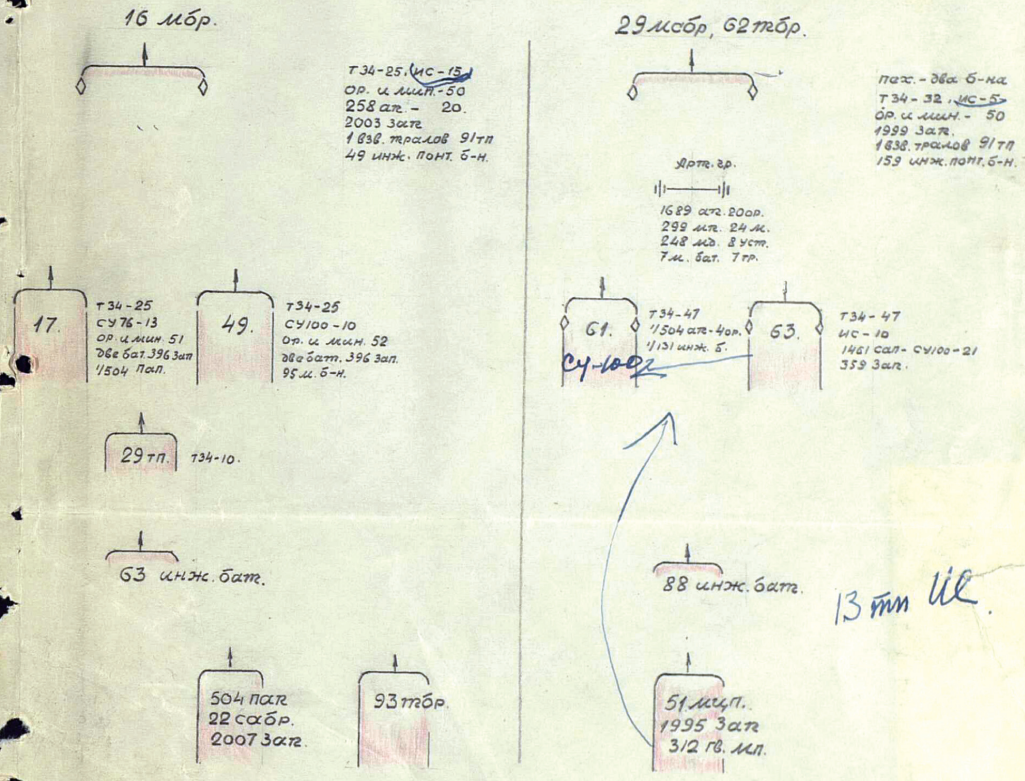 16 мбр.
Т34-25, ИС-15
ор. и мин.-50
258 ап. - 20.
2003 зап
1 взв. тралов 91тп
49 инж. понт. б-н.
17.
Т34-25
СУ76-13
ор. и мин. 51
две бат. 396 зап
1/504 пап.
49.
Т34-25
СУ100-10
ор. и мин. 52
две бат. 396 зап.
95 м. б-н.
29 тп.
Т34-10.
63 инж. бат.
504 пап
22 сабр.
2007 зап.
93 тбр.
29 мсбр, 62 тбр.
пех. - два б-на
Т34-32, ИС-5
ор. и мин. - 50
1999 зап.
1 взв. тралов 91тп
159 инж. понт. б-н.
Арт. гр.
1689 ап. 20 ор.
299 мп. 24 м.
248 мд. 8 уст.
7 м. бат. 7 тр.
61.
Т34-47
1/504 ап-4 ор.
1/131 инж. б.
СУ-100
63.
Т34-47
ИС-10
1461 сап-СУ100-21
359 зап.
88 инж. бат.
13 тп ИС.
51 мцп.
1995 зап
312 гв. мп.